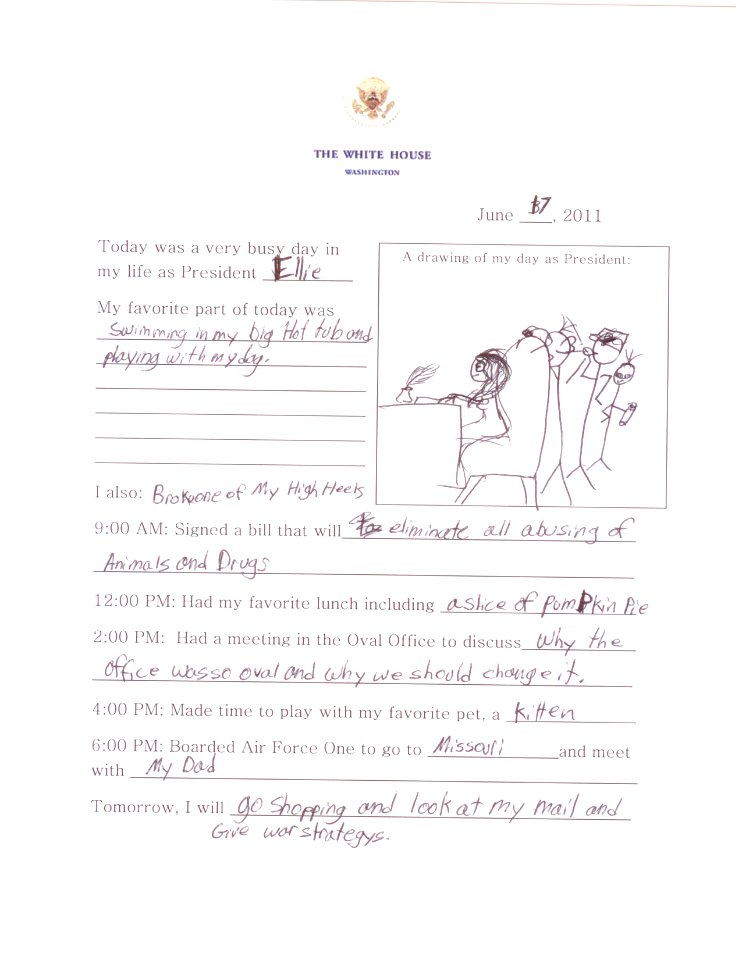 THE WHITE HOUSE
WASHINGTON
June 17, 2011
Today was a very busy day in
my life as President Ellie
My favorite part of today was
Swimming in my big Hot tub and
playing with my dog.
A drawing of my day as President:
I also: Broke one of My High Heels
9:00 AM: Signed a bill that will eliminate all abusing of
Animals and Drugs
12:00 PM: Had my favorite lunch including a slice of PumPkin Pie
2:00 PM: Had a meeting in the Oval Office to discuss Why the
office was so oval and why we should change it.
4:00 PM: Made time to play with my favorite pet, a kitten
6:00 PM: Boarded Air Force One to go to Missouri and meet
with My Dad
Tomorrow, I will go Shopping and look at my mail and
Give war strategys.